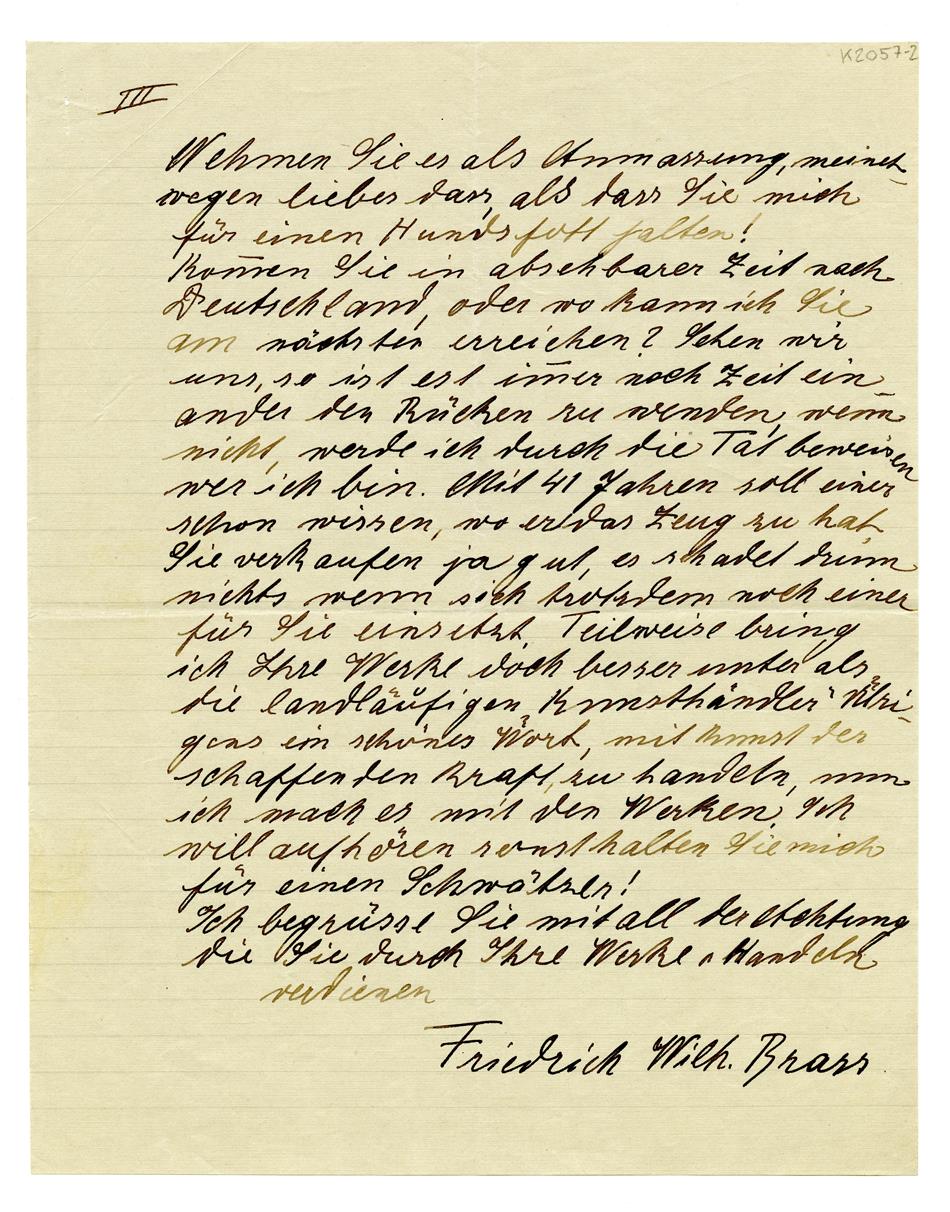 K2057-2
III
Nehmen Sie es als Anmassung, meinet-
wegen lieber dass, als dass Sie mich
für einen Hundsfott halten!
Kom̄en Sie in absehbarer Zeit nach
Deutschland, oder wo kann ich Sie
am nächsten erreichen? Sehen wir
uns, so ist es im̄er noch Zeit ein
ander den Rücken zu wenden, wenn
nicht, werde ich durch die Tat beweisen
wer ich bin. Mit 41 Jahren soll einer
schon wissen, wo er das Zeug zu hat,
Sie verkaufen ja gut, es schadet drum
nichts wenn sich trotzdem noch einer
für Sie einsetzt. Teilweise bring
ich Ihre Werke doch besser unter als
die landläufigen „Kunsthändler" Übri-
gens ein schönes Wort, mit Kunst der
schaffenden Kraft, zu handeln, nun
ich mach es mit den Werken. Ich
will aufhören sonst halten Sie mich
für einen Schwätzer!
Ich begrüsse Sie mit all der Achtung
die Sie durch Ihre Werke u Handeln
verdienen
Friedrich Wilh. Brass